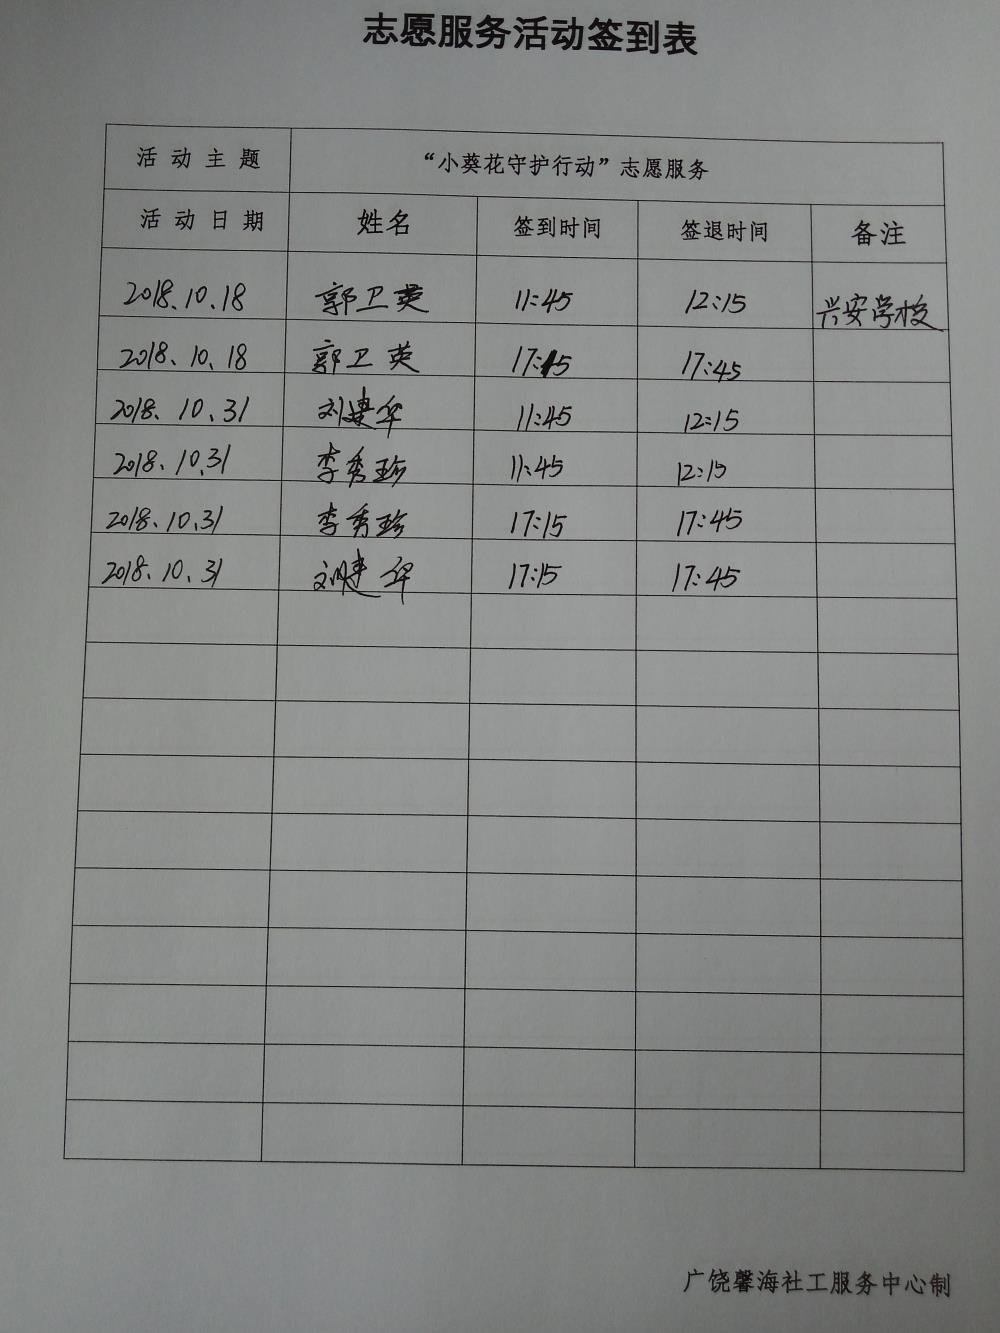 志愿服务活动签到表
活动主题 “小葵花守护行动”志愿服务
活动日期 姓名 签到时间 签退时间 备注
2018.10.18 郭卫英 11:45 12:15 兴安学校
2018.10.18 郭卫英 17:15 17:45
2018.10.31 刘建华 11:45 12:15
2018.10.31 李秀珍 11:45 12:15
2018.10.31 李秀珍 17:15 17:45
2018.10.31 刘建华 17:15 17:45
广饶馨海社工服务中心制